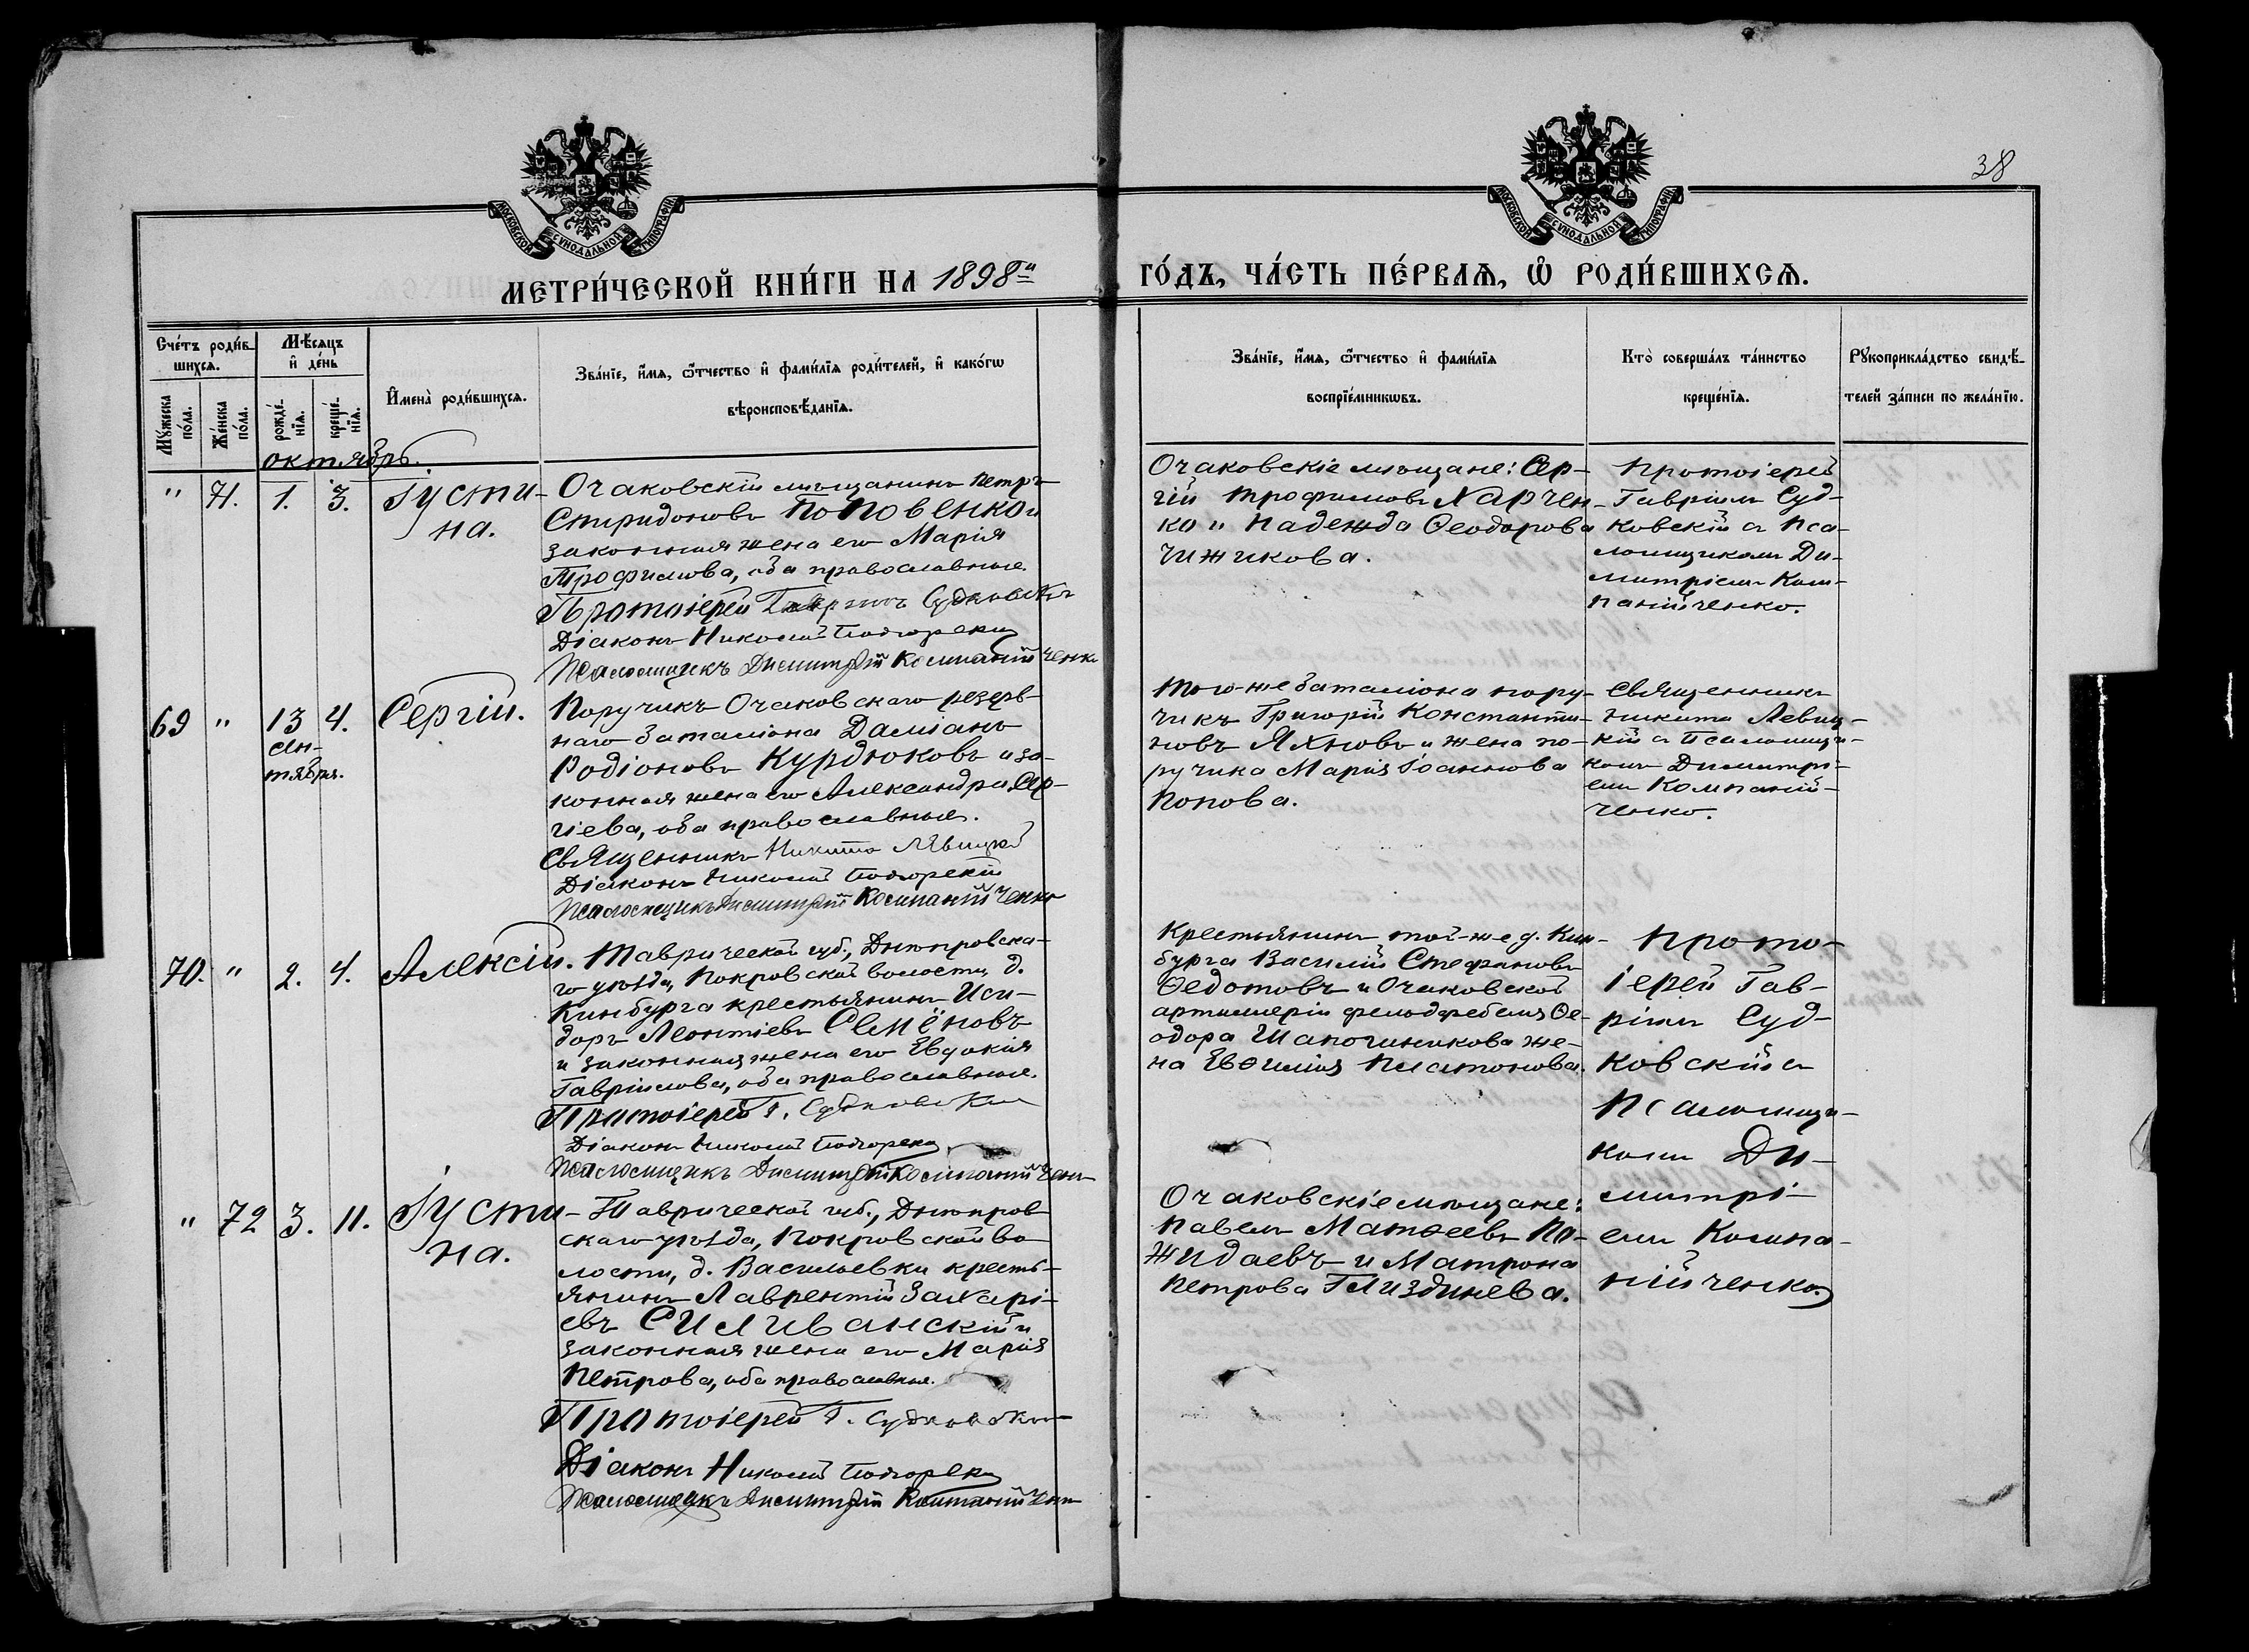 38
МОСКОВСКОЙ СѴНОДАЛЬНОЙ ТИПОГРАФІИ
МОСКОВСКОЙ СѴНОДАЛЬНОЙ ТИПОГРАФІИ
МЕТРИ́ЧЕСКОЙ КНИ́ГИ НА 1898й ГО́ДЪ, ЧА́СТЬ ПЕ́РВАѦ, Ѡ҆ РОДИ́ВШИХСѦ.
Сче́тъ роди́в-
шихсѧ.
Му́жеска
по́ла.
Же́нска
по́ла.
Мѣ́сѧцъ
и҆ де́нь
рожде́-
нїѧ.
креще́-
нїѧ.
И҆мена̀ роди́вшихсѧ.
Зва́нїе, и҆́мѧ, ѻ҆́тчество и҆ фами́лїѧ роди́телей, и҆ како́гѡ
вѣроисповѣ́данїѧ.
Зва́нїе, и҆́мѧ, ѻ҆́тчество и҆ фами́лїѧ
воспрїе́мникѡвъ.
Кто̀ соверша́лъ та́инство
креще́нїѧ.
Рꙋкоприкла́дство свидѣ́-
телей за́писи по жела́нїю.
октябрь.
" 71. 1. 3. Іусти-
на.
Очаковскій мѣщанинъ Петръ
Спиридоновъ Поповенко и
законная жена его Марія
Трофимова, оба православные.
Протоіерей Гавріилъ Судковскій
Діаконъ Николай Подгорскій
Псаломщикъ Димитрій Компанійченко
Очаковскіе мѣщане: Сер-
гій Трофимовъ Харчен-
ко и Надежда Ѳеодорова
Чижикова.
Протоіерей
Гавріилъ Суд-
ковскій съ Пса-
ломщикомъ Ди-
митріемъ Ком-
панійченко.
69 " 13 4. Сергій.
сен-
тября.
Поручикъ Очаковскаго резерв-
наго баталіона Даміанъ
Родіоновъ Курдюковъ и за-
конная жена его Александра Сер-
гіева, оба православные.
Священникъ Никита Левицкій
Діаконъ Николай Подгорскій
Псаломщикъ Димитрій Компанійченко
Того-же баталіона пору-
чикъ Григорій Константи-
новъ Яхновъ и жена по-
ручика Марія Іоаннова
Попова.
Священникъ
Никита Левиц-
кій съ Псаломщи-
комъ Димитрі-
емъ Компаній-
ченко.
70. " 2. 4. Алексій.
Таврической губ., Днѣпровска-
го уѣзда, Покровской волости, д.
Кинбурга крестьянинъ Иси-
доръ Леонтіевъ Семёновъ
и законная жена его Евдокія
Гавріилова, оба православные.
Протоіерей Г. Судковскій
Діаконъ Николай Подгорскій
Псаломщикъ Димитрій Компанійченко
Крестьянинъ той-же д. Кин-
бурга Василій Стефановъ
Ѳедотовъ и Очаковской
артиллеріи фельдфебеля Ѳе-
одора Шапочникова же-
на Евѳимія Платонова.
Прото-
іерей Гав-
ріилъ Суд-
ковскій съ
Псаломщи-
комъ Ди-
митрі-
емъ Компа-
нійченко.
" 72 3. 11. Іусти-
на.
Таврической губ., Днѣпров-
скаго уѣзда, Покровской во-
лости, д. Васильевки кресть-
янинъ Лаврентій Захарі-
евъ Силиванскій и
законная жена его Марія
Петрова, оба православные.
Протоіерей Г. Судковскій
Діаконъ Николай Подгорскій
Псаломщикъ Димитрій Компанійченко
Очаковскіе мѣщане:
Павелъ Матѳеевъ По-
жидаевъ и Матрона
Петрова Глиздинева.